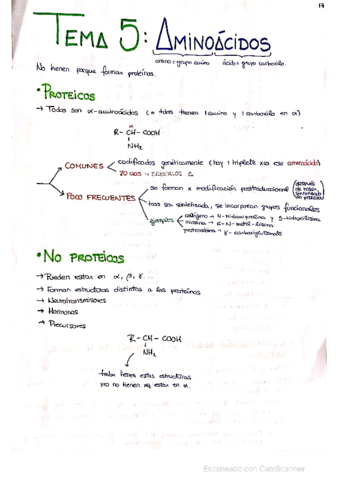 17
TEMA 5: AMINOÁCIDOS
amino = grupo amino ácido = grupo carboxilo
No tienen porque formar proteínas.
• PROTEICOS
→ Todos son α-aminoácidos (= tdos tienen 1 amino y 1 carboxilo en α)
α
R - CH - COOH
NH₂
→ COMUNES codificados genéticamente (hay 1 triplete xa ese aminoácido)
20 aas →
→ POCO FRECUENTES
se forman x modificación postraduccional (después de
tras ser sintetizada, se incorporan grupos funcionales
ejemplos colágeno → 4-hidroxiprolina y 5-hidroxilisina
miosina → 6-N-metil-lisina
protrombina → γ-carboxiglutamato
• NO PROTEICOS
→ Pueden estar en α, β, γ...
→ Forman estructuras distintas a las proteínas
→ Neurotransmisores
→ Hormonas
→ Precursores
R - CH - COOH
NH₂
todos tienen estas estructuras
pro no tienen xq estar en α.
Escaneado con CamScanner